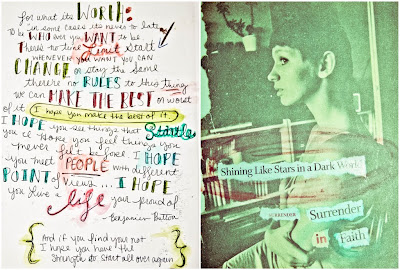 for what its WORTH:
in some cases its never to late
to be WHO ever you WANT to be.
There's no time Limit start
WHENEVER YOU WANT YOU CAN
CHANGE or stay the same
there're no RULES to this thing
we can MAKE THE BEST or worst
of it. I hope you make the best of it.
I HOPE you see things that Startle
you & Hope you feel things you
never felt before. I HOPE
you meet PEOPLE with different
POINT of Views... I HOPE
you live a life your proud of
-Benjamin Button
{ And if you find your not
I hope you have the
Strength to Start all over again }
Shining Like Stars in a Dark World
SURRENDER Surrender
in Faith